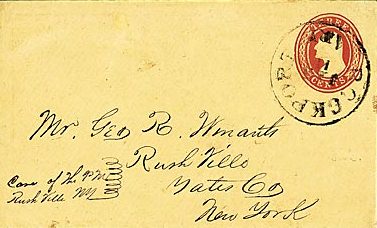 THREE
CENTS
ROCKPORT
Mr. Geo R. Winants
Rush Ville
Yates Co
New York
Care of The P.M.
Rush Ville NY